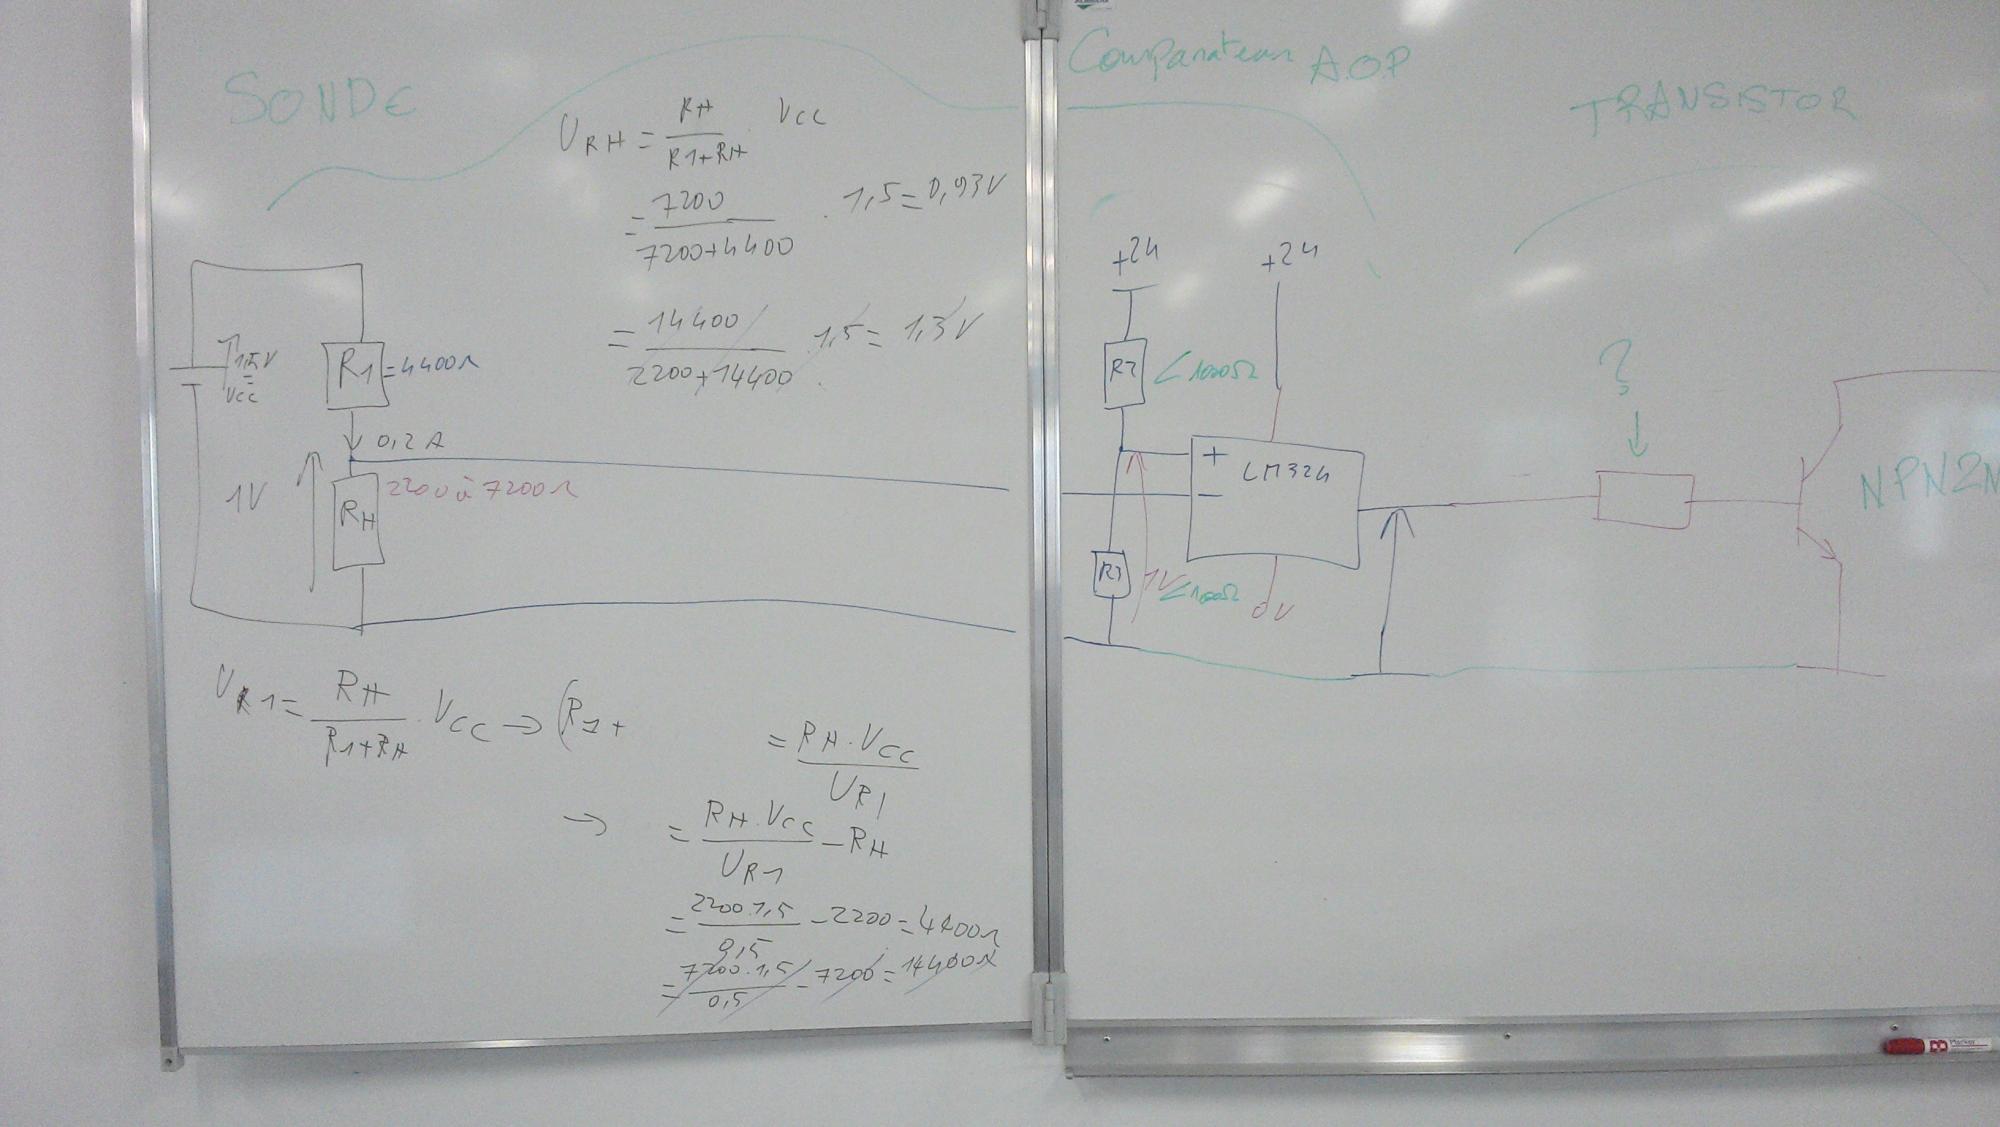 SONDE
URH = RH / R1+RH . Vcc
= 7200 / 7200+4400 . 1,5 = 0,93V
= 14400 / 2200+14400 . 1,5 = 1,3V
1,5V
Vcc
R1 = 4400Ω
0,2 A
1V
RH
2200 à 7200Ω
UR1 = RH / R1+RH . VCC → (R1+
= RH.Vcc / UR1
→ = RH.Vcc / UR1 - RH
= 2200.1,5 / 0,5 - 2200 = 4400Ω
= 7200.1,5 / 0,5 - 7200 = 14400Ω
Comparateur A.O.P
+24
+24
R2
<1000Ω
+
-
LM324
R3
1V
<1000Ω
0V
TRANSISTOR
?
NPN2N
Marker